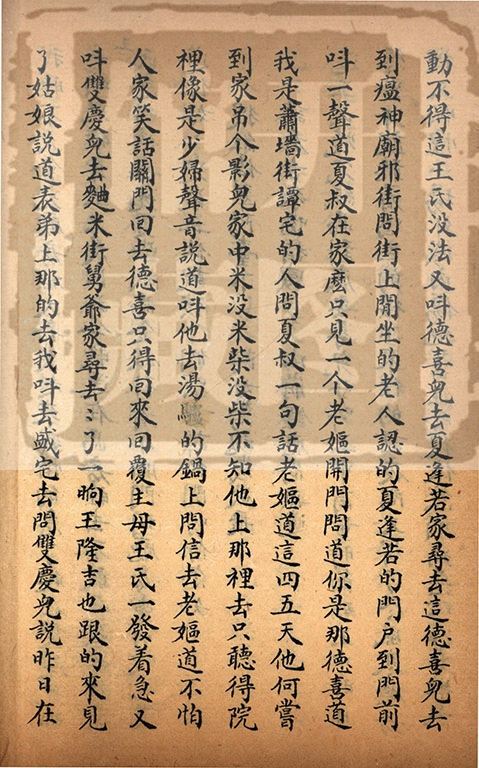 動不得這王氏没法又呌德喜兒去夏逢若家尋去這德喜兒去
到瘟神廟邪街問街上閒坐的老人認的夏逢若的門户到門前
呌一聲道夏叔在家麽只見一个老嫗開門問道你是那德喜道
我是蕭墻街譚宅的人問夏叔一句話老嫗道這四五天他何嘗
到家吊个影兒家中米没米柴没柴不知他上那裡去只聽得院
裡像是少婦聲音説道呌他去湯驢的鍋上問信去老嫗道不怕
人家笑話關門回去德喜只得回來回覆主母王氏一發着急又
呌雙慶兒去麯米街舅爺家尋去〻了一晌王隆吉也跟的來見
了姑娘説道表弟上那的去我呌去盛宅去問雙慶兒説昨日在